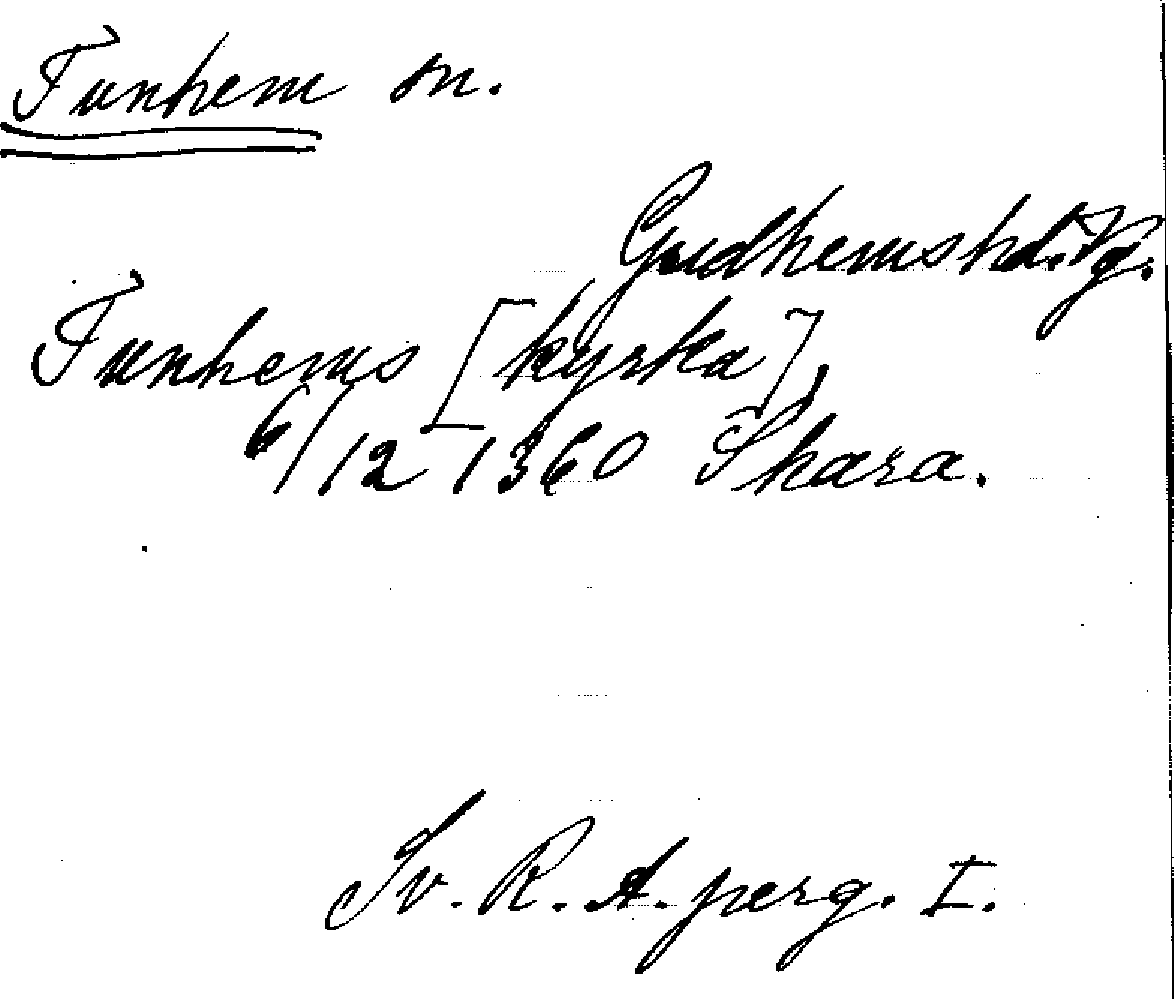 Funhem sn.
Gudhems hd. Vg.
Funhems [kyrka],
6/12 1360 Skara.
Sv. R. A. perg. I.